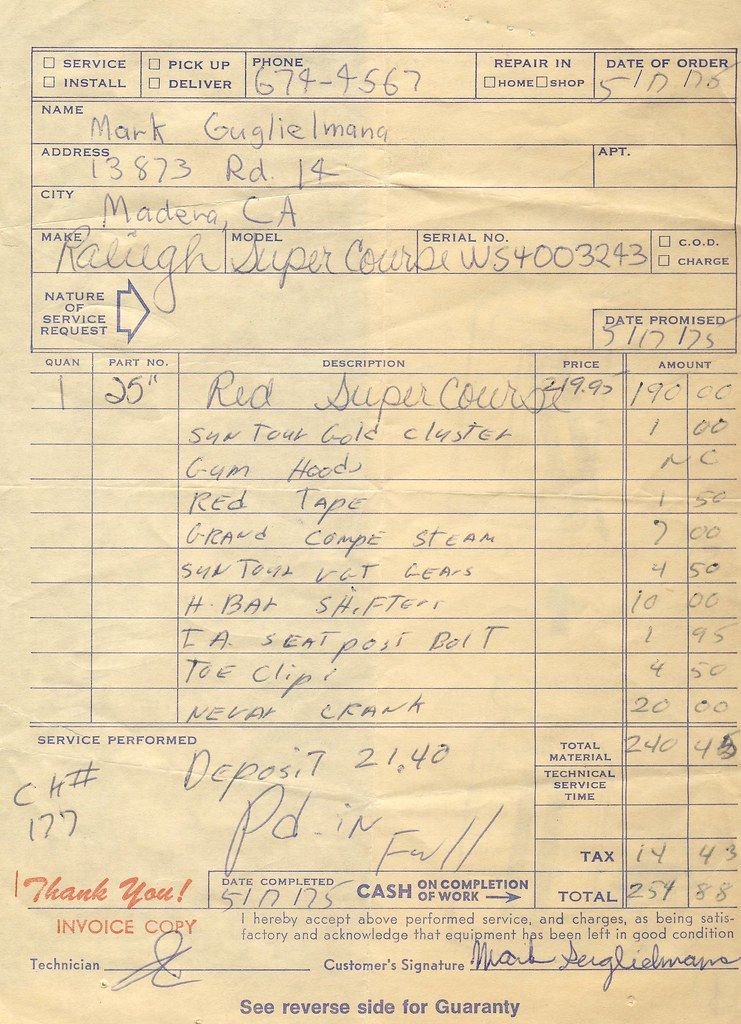 ☐ SERVICE ☐ PICK UP PHONE REPAIR IN DATE OF ORDER
☐ INSTALL ☐ DELIVER 674-4567 ☐ HOME ☐ SHOP 5/17/75
NAME Mark Guglielmana
ADDRESS 13873 Rd. 14 APT.
CITY Madera, CA
MAKE Raleigh MODEL Super Course SERIAL NO. WS4003243 ☐ C.O.D.
☐ CHARGE
NATURE
OF
SERVICE
REQUEST
DATE PROMISED
5/17/75
QUAN PART NO. DESCRIPTION PRICE AMOUNT
1 25" Red Super Course 219.95 190 00
SUN Tour Gold cluster 1 00
Gum Hoods NC
RED TAPE 1 50
GRAND COMPE STEAM 7 00
SUN Tour VGT GEARS 4 50
H. BAR SHiFTErs 10 00
T.A. SEAT post BolT 1 95
TOE Clips 4 50
NEVAR CRANK 20 00
SERVICE PERFORMED
Deposit 21.40
TOTAL MATERIAL 240 45
TECHNICAL SERVICE TIME
CH#
177
Pd. in Full
TAX 14 43
Thank You!
DATE COMPLETED 5/17/75 CASH ON COMPLETION OF WORK → TOTAL 254 88
INVOICE COPY
I hereby accept above performed service, and charges, as being satis-
factory and acknowledge that equipment has been left in good condition
Technician Customer's Signature Mark Guglielmana
See reverse side for Guaranty